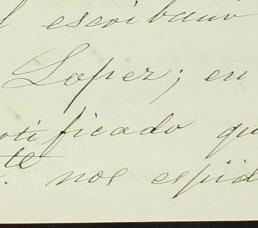 l escribano
Lopez; en
otificado qu
te nos espid